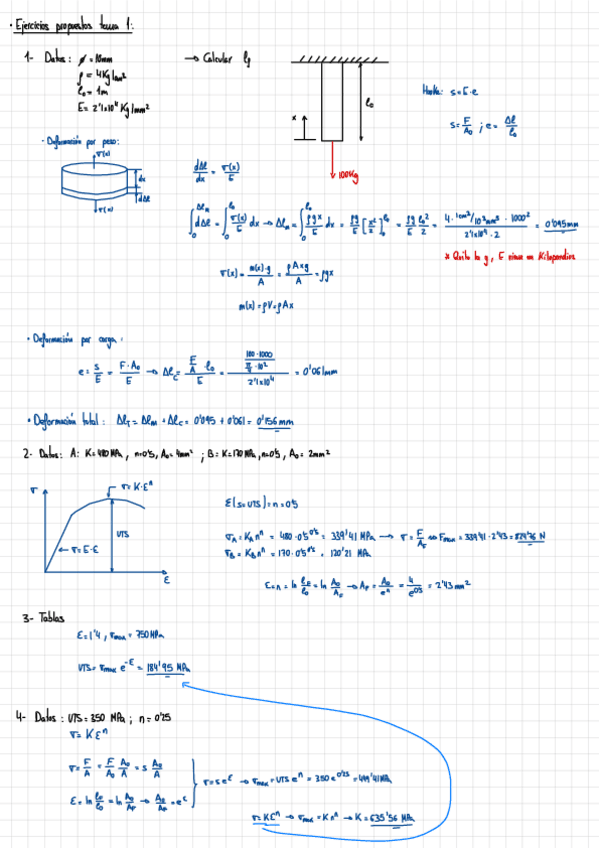 · Ejercicios propuestos tema 1:
1- Datos: ø = 10mm → Calcular lf
ρ = 4Kg/cm³
l₀ = 1m
E = 2'1×10⁴ Kg/mm²
Hooke: s = E·e
s = F/A₀ ; e = Δl/l₀
l₀
x
100Kg
· Deformación por peso:
σ(x)
dx
dΔl
σ(x)
dΔl/dx = σ(x)/E
∫₀^Δlm dΔl = ∫₀^l₀ σ(x)/E dx → Δlm = ∫₀^l₀ ρgx/E dx = ρg/E [x²/2]₀^l₀ = ρg/E l₀²/2 = 4·1cm³/10³mm³·1000²/2'1×10⁴·2 = 0'095mm
* Quito la g, E viene en Kilopondios
σ(x) = m(x)·g/A = ρAxg/A = ρgx
m(x) = ρV = ρAx
· Deformación por carga:
e = s/E = F·A₀/E → Δlc = F/A l₀/E = 100·1000/π/4·10²/2'1×10⁴ = 0'061mm
· Deformación total: ΔlT = Δlm + Δlc = 0'095 + 0'061 = 0'156mm
2- Datos: A: K=480MPa, n=0'5, A₀=4mm² ; B: K=170MPa, n=0'5, A₀=2mm²
σ
σ=K·εⁿ
UTS
σ=E·ε
ε
ε(s=UTS) = n = 0'5
σA = KAnⁿ = 480·0'5^0'5 = 339'41 MPa → σ = F/Af ⇔ Fmax = 339'41·2'43 = 824'76 N
σB = KBnⁿ = 170·0'5^0'5 = 120'21 MPa
ε=n = ln lf/l₀ = ln A₀/Af → Af = A₀/eⁿ = 4/e^0'5 = 2'43mm²
3- Tablas
ε=1'4, σmax = 750MPa
UTS = σmax e^-ε = 184'95 MPa
4- Datos: UTS=350 MPa; n=0'25
σ=Kεⁿ
σ = F/A = F/A₀ A₀/A = s A₀/A
ε = ln lf/l₀ = ln A₀/Af → A₀/Af = e^ε
σ = s e^ε → σmax = UTS eⁿ = 350 e^0'25 = 449'41MPa
σ=Kεⁿ → σmax = Knⁿ → K = 635'56 MPa